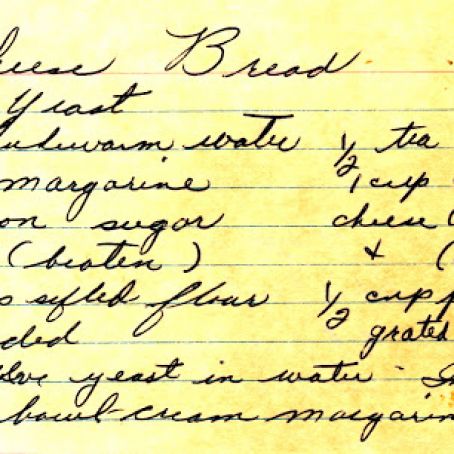 heese Bread
Yeast
ukewarm water ½ tea
margarine 1 cup
on sugar cheese (
(beaten) + (
s sifted flour ½ cup p
ded grated
olve yeast in water - In
bowl-cream margarin